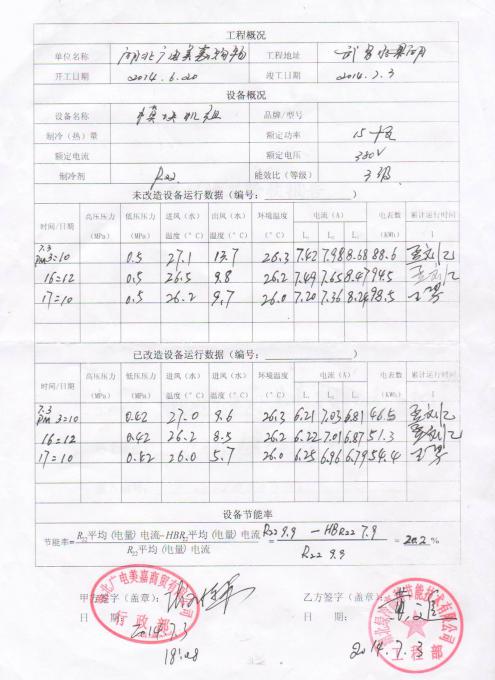 工程概况
单位名称 湖北广电美嘉购物 工程地址
开工日期 2014.6.20 竣工日期 2014.7.3
设备概况
设备名称 模块机组 品牌/型号
制冷（热）量 额定功率 15
额定电流 额定电压 380V
制冷剂 R22 能效比（等级） 3级
未改造设备运行数据（编号：）
时间/日期 高压压力（MPa） 低压压力（MPa） 进风（水）温度（°C） 出风（水）温度（°C） 环境温度（°C） 电流（A） L L L 电表数（KWh） 累计运行时间
7.3 PM 3=10 0.5 27.1 13.7 26.3 7.42 7.98 8.68 88.6
16=12 0.5 26.5 9.8 26.2 7.49 7.65 8.47 94.5
17=10 0.5 26.2 9.7 26.0 7.20 7.36 8.24 98.5
已改造设备运行数据（编号：）
时间/日期 高压压力（MPa） 低压压力（MPa） 进风（水）温度（°C） 出风（水）温度（°C） 环境温度（°C） 电流（A） L L L 电表数（KWh） 累计运行时间
7.3 PM 3=10 0.42 27.0 9.6 26.3 6.21 7.03 6.81 46.5
16=12 0.42 26.2 8.5 26.2 6.22 7.01 6.87 51.3
17=10 0.42 26.0 5.7 26.0 6.25 6.96 6.79 54.4
设备节能率
节能率= R22平均（电量）电流-HBR22平均（电量）电流 / R22平均（电量）电流 = R22 9.9 - HBR22 7.9 / R22 9.9 = 20.2 %
甲方签字（盖章） 乙方签字（盖章）：
日期 2014.7.3 日期： 2014.7.3
18:08
湖北广电美嘉商贸有限公司
行政部
工程部